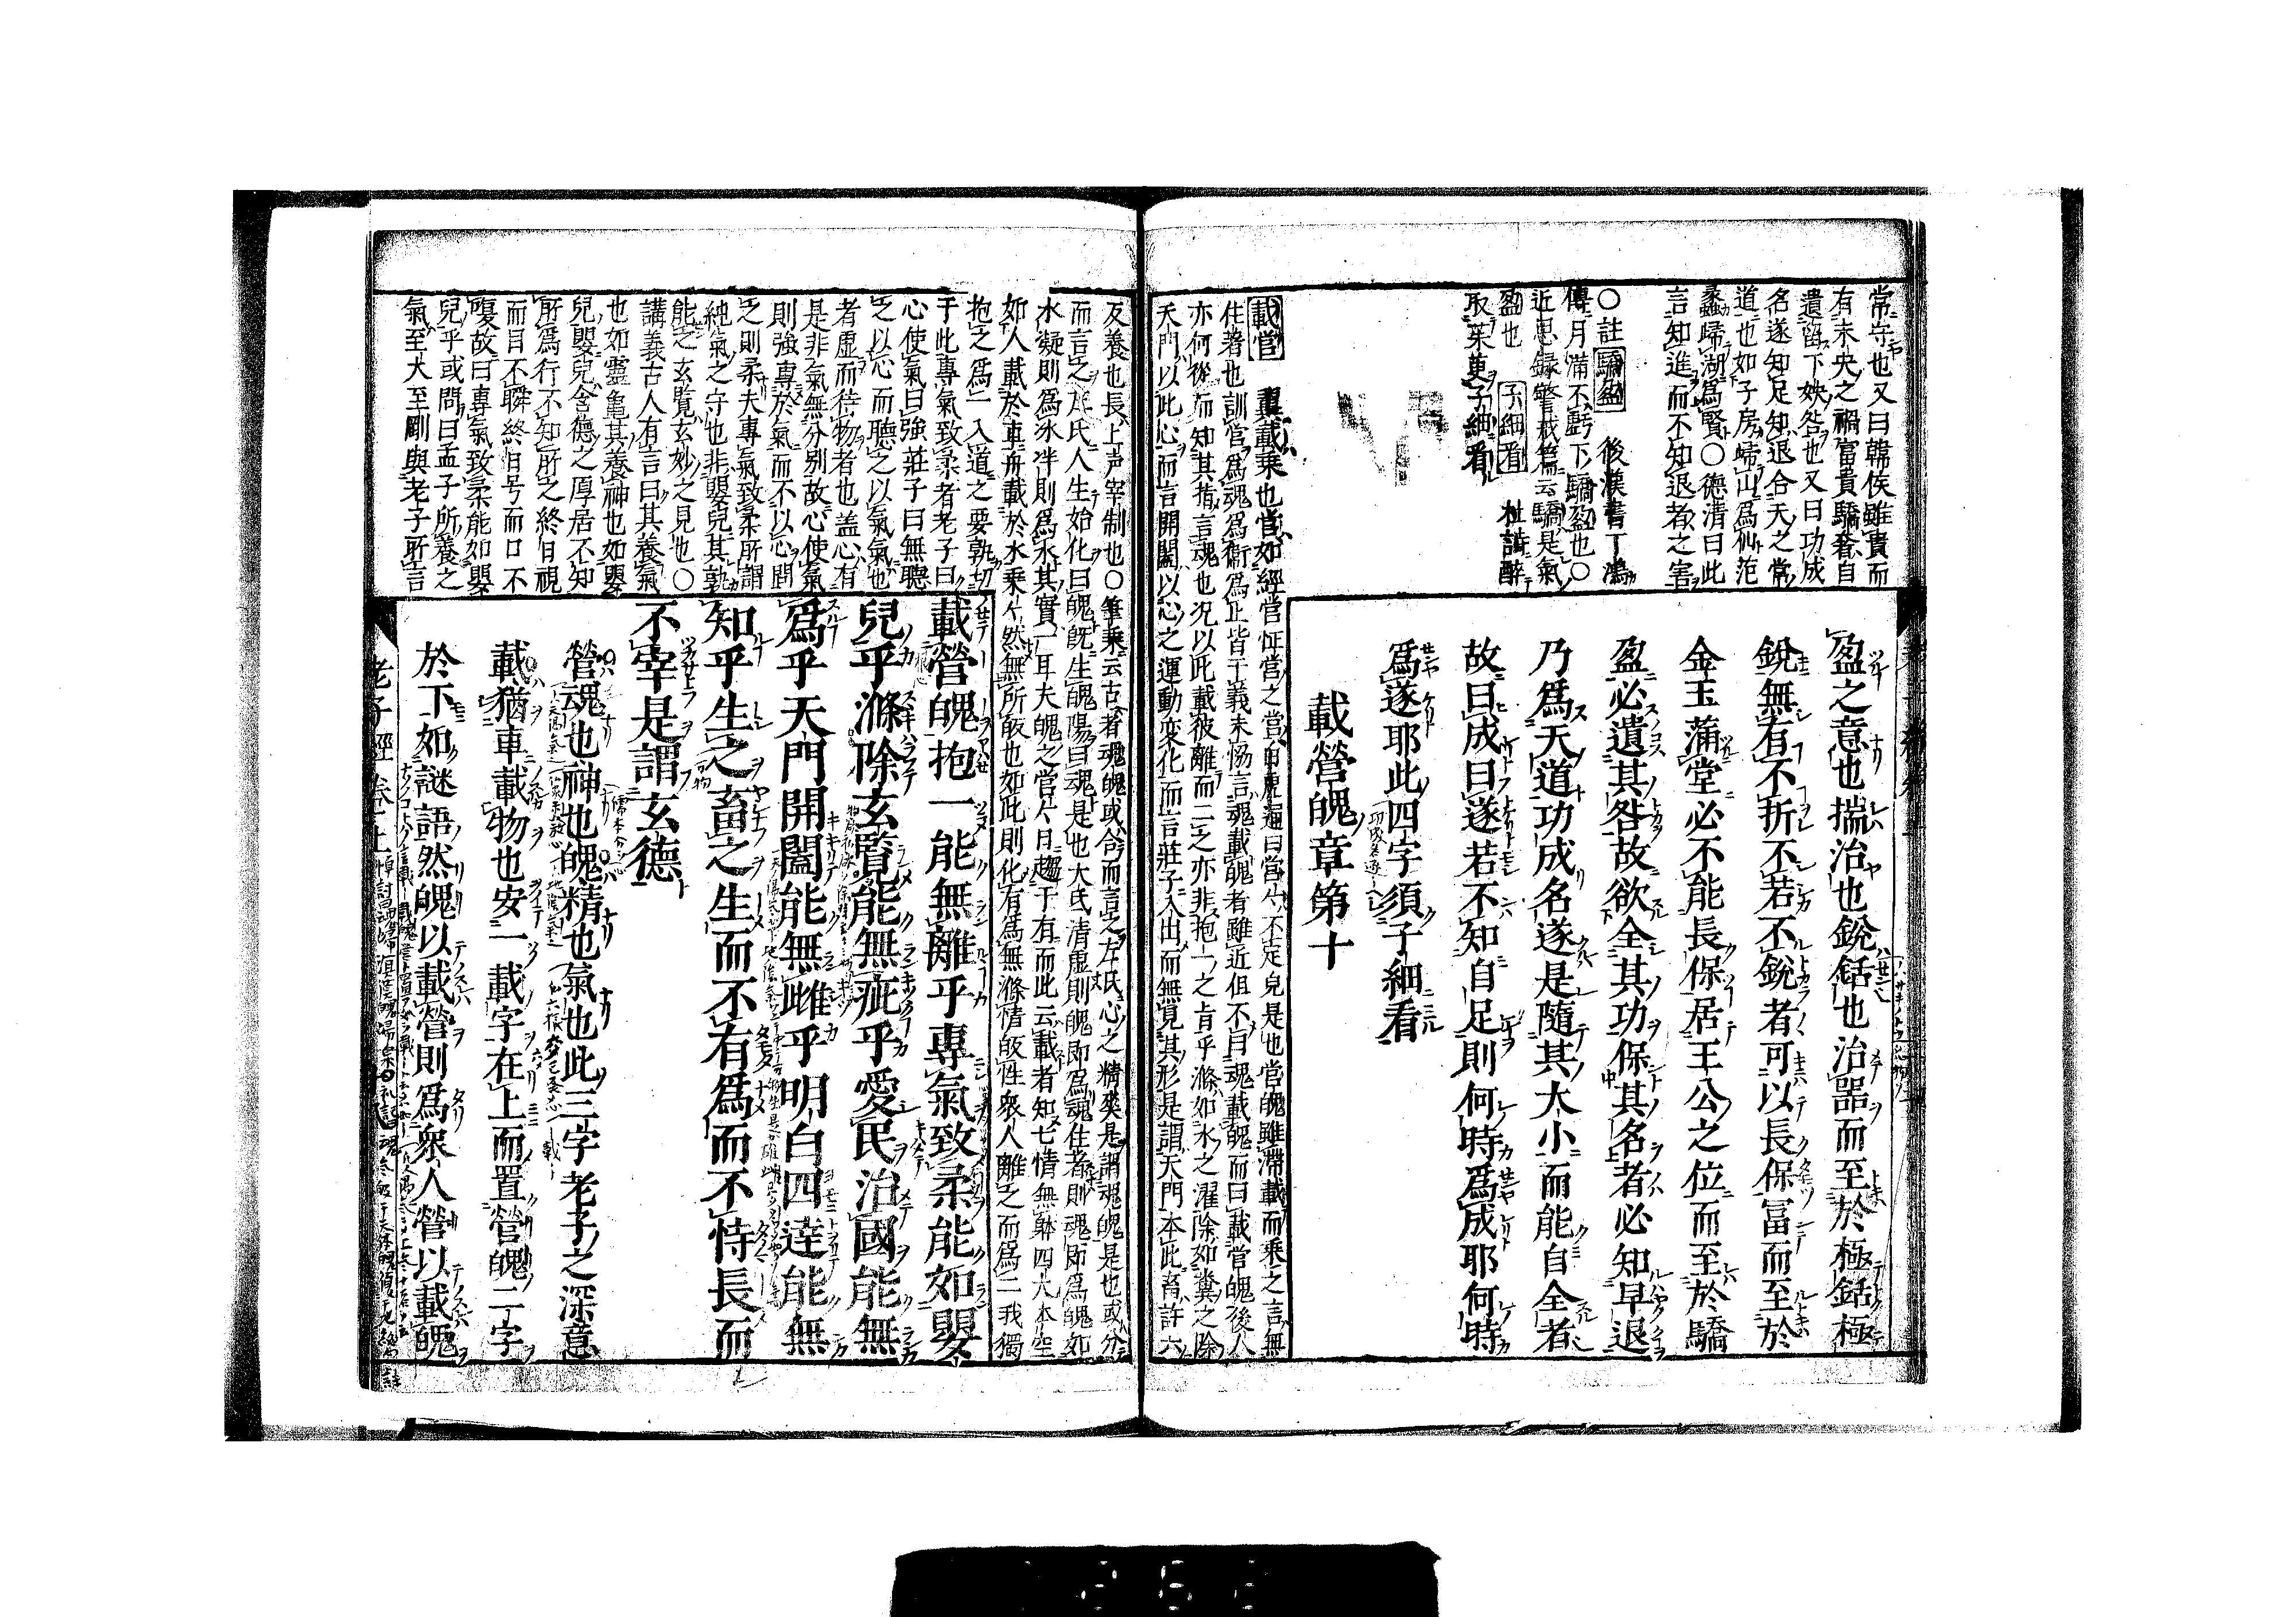 常守也又曰韓侯雖貴而
有未央之禍富貴驕奢自
遺留下姎咎也又曰功成
名遂知足知退合天之常
道也如子房帰山爲仙范
蠡歸湖爲賢〇德清曰此
言知進而不知退者之害
〇註 驕盈 後漢書丁鴻
傳月滿不虧下驕盈也〇
近思録警戒篇云驕是氣
盈也 子細看 杜詩醉
取茱萸子細看
盈之意也揣治也銳銛也治器而至於極銛極
銳無有不折不若不銳者可以長保冨而至於
金玉滿堂必不能長保居王公之位而至於驕
盈必遺其咎故欲全其功保其名者必知早退
乃爲天道功成名遂是隨其大小而能自全者
故曰成曰遂若不知自足則何時爲成耶何時
爲遂耶此四字須子細看
載營魄章第十
載營 翼載乘也營如經營怔營之營白虎通曰營々不定皃是也營魄雖滯載而乘之言無
住著也訓營爲魂爲衛爲止皆于義未恊言魂載魄者雖近但不曰魂載魄而曰載營魄後人
亦何從而知其指言魂也况以此載彼離而二之亦非抱一之肯乎滌如水之濯除如糞之除
天門以此心而言開闔以心之運動変化而言莊子入出而無見其形是謂天門本此畜許六
反養也長上声宰制也〇筆乘云古者魂魄或合而言之左氏心之精爽是謂魂魄是也或分
而言之左氏人生始化曰魄旣生魄陽曰魂是也大氏清虛則魄即爲魂住者則魂即爲魄如
水凝則爲氷泮則爲水其實一耳夫魄之營々日趨于有而此云載者知七情無體四大本空
如人載於車舟載於水乘々然無所皈也如此則化有爲無滌情皈性衆人離之而爲二我獨
抱之爲一入道之要孰切
于此專氣致柔者老子曰
心使氣曰強莊子曰無聽
之以心而聽之以氣氣也
者虛而待物者也盖心有
是非氣無分別故心使氣
則強專於氣而不以心間
之則柔夫專氣致柔所謂
純氣之守也非嬰兒其孰
能之玄覽玄妙之見也〇
講義古人有言曰其養氣
也如靈龜其養神也如嬰
兒嬰兒含德之厚居不知
所爲行不知所之終日視
而目不瞬終日号而口不
嗄故曰專氣致柔能如嬰
兒乎或問曰孟子所養之
氣至大至剛與老子所言
載營魄抱一能無離乎專氣致柔能如嬰
兒乎滌除玄覽能無疵乎愛民治國能無
爲乎天門開闔能無雌乎明白四達能無
知乎生之畜之生而不有爲而不恃長而
不宰是謂玄德
營魂也神也魄精也氣也此三字老子之深意
載猶車載物也安一載字在上而置營魄二字
於下如謎語然魄以載營則爲衆人營以載魄
老子經 卷上